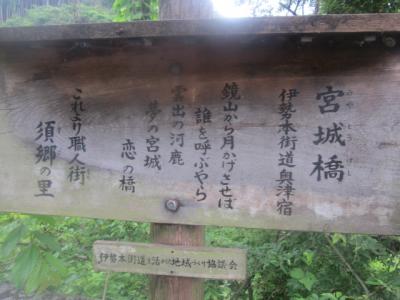 宮城橋
みやぎばし
伊勢本街道奥津宿
鏡山から月かげさせば
誰を呼ぶやら
雲出の河鹿
夢の宮城
恋の橋
これより職人街
須郷の里
伊勢本街道を活かした地域づくり協議会